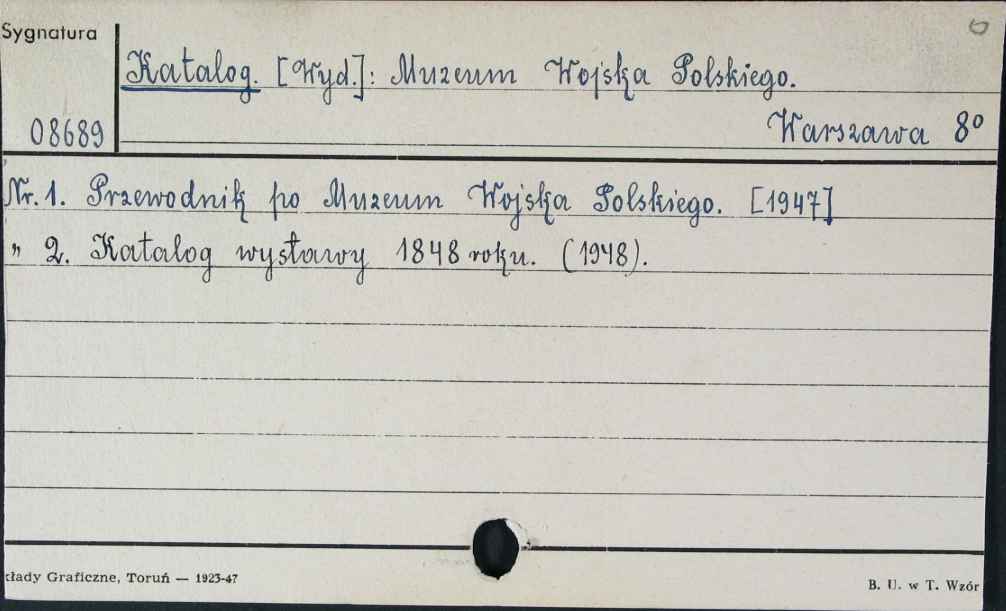 Sygnatura
Katalog. [Wyd.]: Muzeum Wojska Polskiego.
08689
Warszawa 8º
Nr. 1. Przewodnik po Muzeum Wojska Polskiego. [1947]
„ 2. Katalog wystawy 1848 roku. (1948).
kłady Graficzne, Toruń — 1923-47
B. U. w T. Wzór